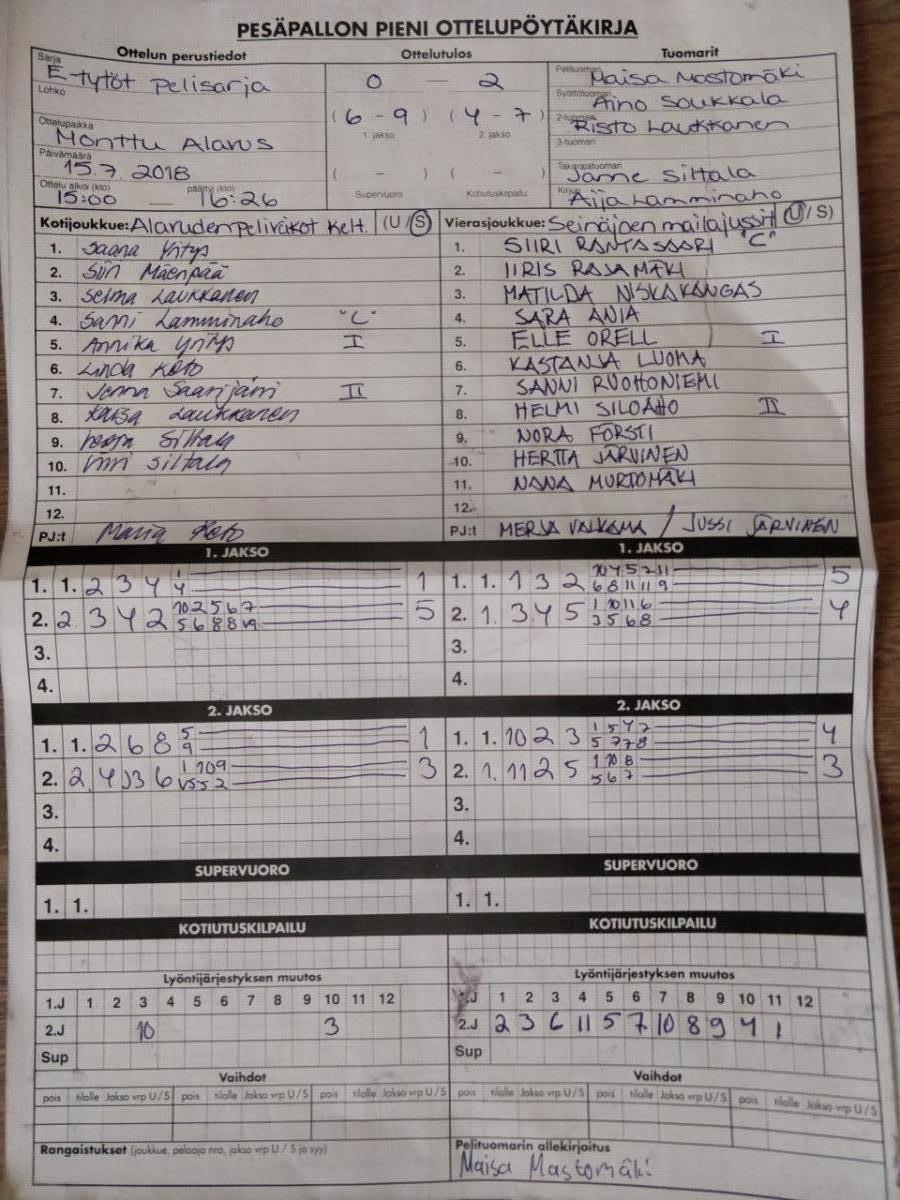 PESÄPALLON PIENI OTTELUPÖYTÄKIRJA
Ottelun perustiedot Ottelutulos Tuomarit
Sarja E-tytöt pelisarja 0 — 2 Pelituomari Maisa Mastomäki
Lohko Syöttötuomari Aino Soukkala
(6 - 9) (4 - 7) 2-tuomari Risto Laukkanen
1. jakso 2. jakso 3-tuomari
Ottelupaikka Monttu Alavus
Päivämäärä 15.7.2018 ( - ) ( - ) Takarajatuomari Janne Siltala
Ottelu alkoi (klo) 15:00 — päättyi (klo) 16:26 Supervuoro Kotiutuskilpailu Kirjuri Aija Lamminaho
Kotijoukkue: Alavuden Peliveikot Kelt. (U / S) Vierasjoukkue: Seinäjoen mailajussit (U / S)
1. Saana Yritys 1. SIIRI RANTASAARI "C"
2. Siiri Mäenpää 2. IIRIS RAJAMÄKI
3. Selma Laukkanen 3. MATILDA NISKAKANGAS
4. Sanni Lamminaho "C" 4. SARA ANIA
5. Annika Yritys I 5. ELLE ORELL I
6. Linda Koto 6. KASTANJA LUOMA
7. Jenna Saarijärvi II 7. SANNI RUOHONIEMI
8. Kaisa Laukkanen 8. HELMI SILOAHO II
9. Siltala 9. NORA FORSTI
10. Siltala 10. HERTTA JÄRVINEN
11. 11. NANA MURTOMÄKI
12. 12.
PJ:t Maria Koto PJ:t MERJA VALKAMA / JUSSI JÄRVINEN
1. JAKSO 1. JAKSO
1. 1. 2 3 4 1 4 1 1. 1. 1 3 2 10 4 5 7 11 6 8 11 11 9 5
2. 2 3 4 2 10 2 5 6 7 5 6 8 8 5 2. 1. 3 4 5 1 10 11 6 3 5 6 8 4
3. 3.
4. 4.
2. JAKSO 2. JAKSO
1. 1. 2 6 8 5 9 1 1. 1. 10 2 3 1 5 4 7 5 7 7 8 4
2. 2 4 3 6 1 10 9 3 2. 1. 11 2 5 1 10 8 5 6 7 3
3. 3.
4. 4.
SUPERVUORO SUPERVUORO
1. 1. 1. 1.
KOTIUTUSKILPAILU KOTIUTUSKILPAILU
Lyöntijärjestyksen muutos Lyöntijärjestyksen muutos
1.J 1 2 3 4 5 6 7 8 9 10 11 12 1.J 1 2 3 4 5 6 7 8 9 10 11 12
2.J 10 3 2.J 2 3 6 11 5 7 10 8 9 4 1
Sup Sup
Vaihdot Vaihdot
pois tilalle Jakso vrp U/S pois tilalle Jakso vrp U/S pois tilalle Jakso vrp U/S pois tilalle Jakso vrp U/S pois tilalle Jakso vrp U/S pois tilalle Jakso vrp U/S
Rangaistukset (joukkue, pelaaja nro, jakso vrp U / S ja syy) Pelituomarin allekirjoitus
Maisa Mastomäki